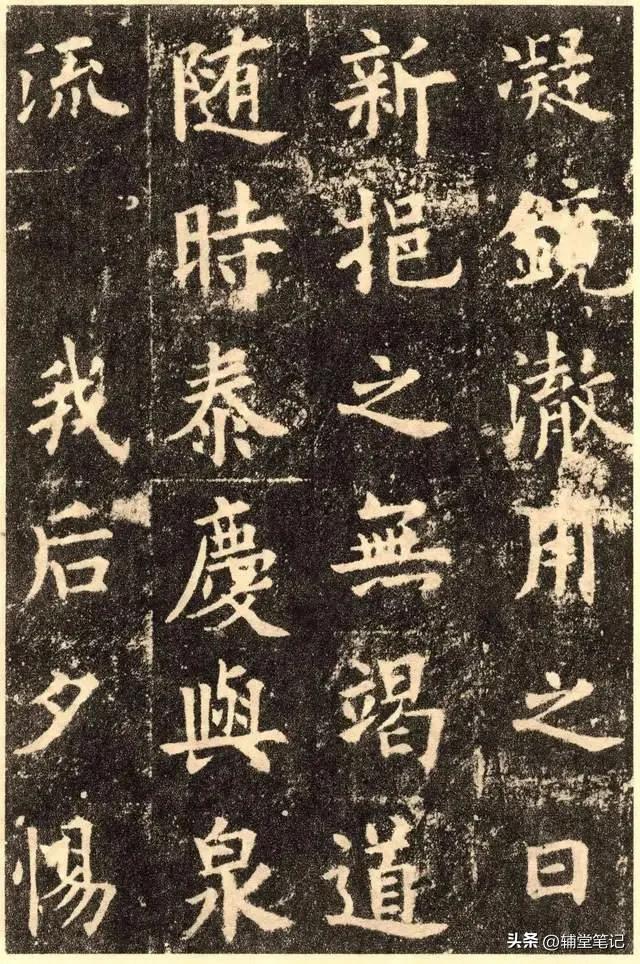 凝鏡澈用之日
新挹之無竭道
随時泰慶與泉
流我后夕惕
头条 @辅堂笔记